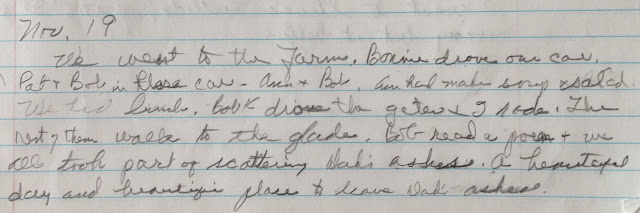 Nov. 19
We went to the Farm. Bonnie drove our car.
Pat & Bob in their car - Ann & Bob. Ann had made soup & salad.
We had lunch. Bob K drove the gator & I rode. The
rest of them walk to the glade. Bob read a poem & we
all took part of scattering Dad's ashes. A beautiful
day and beautiful place to leave Dad's ashes.